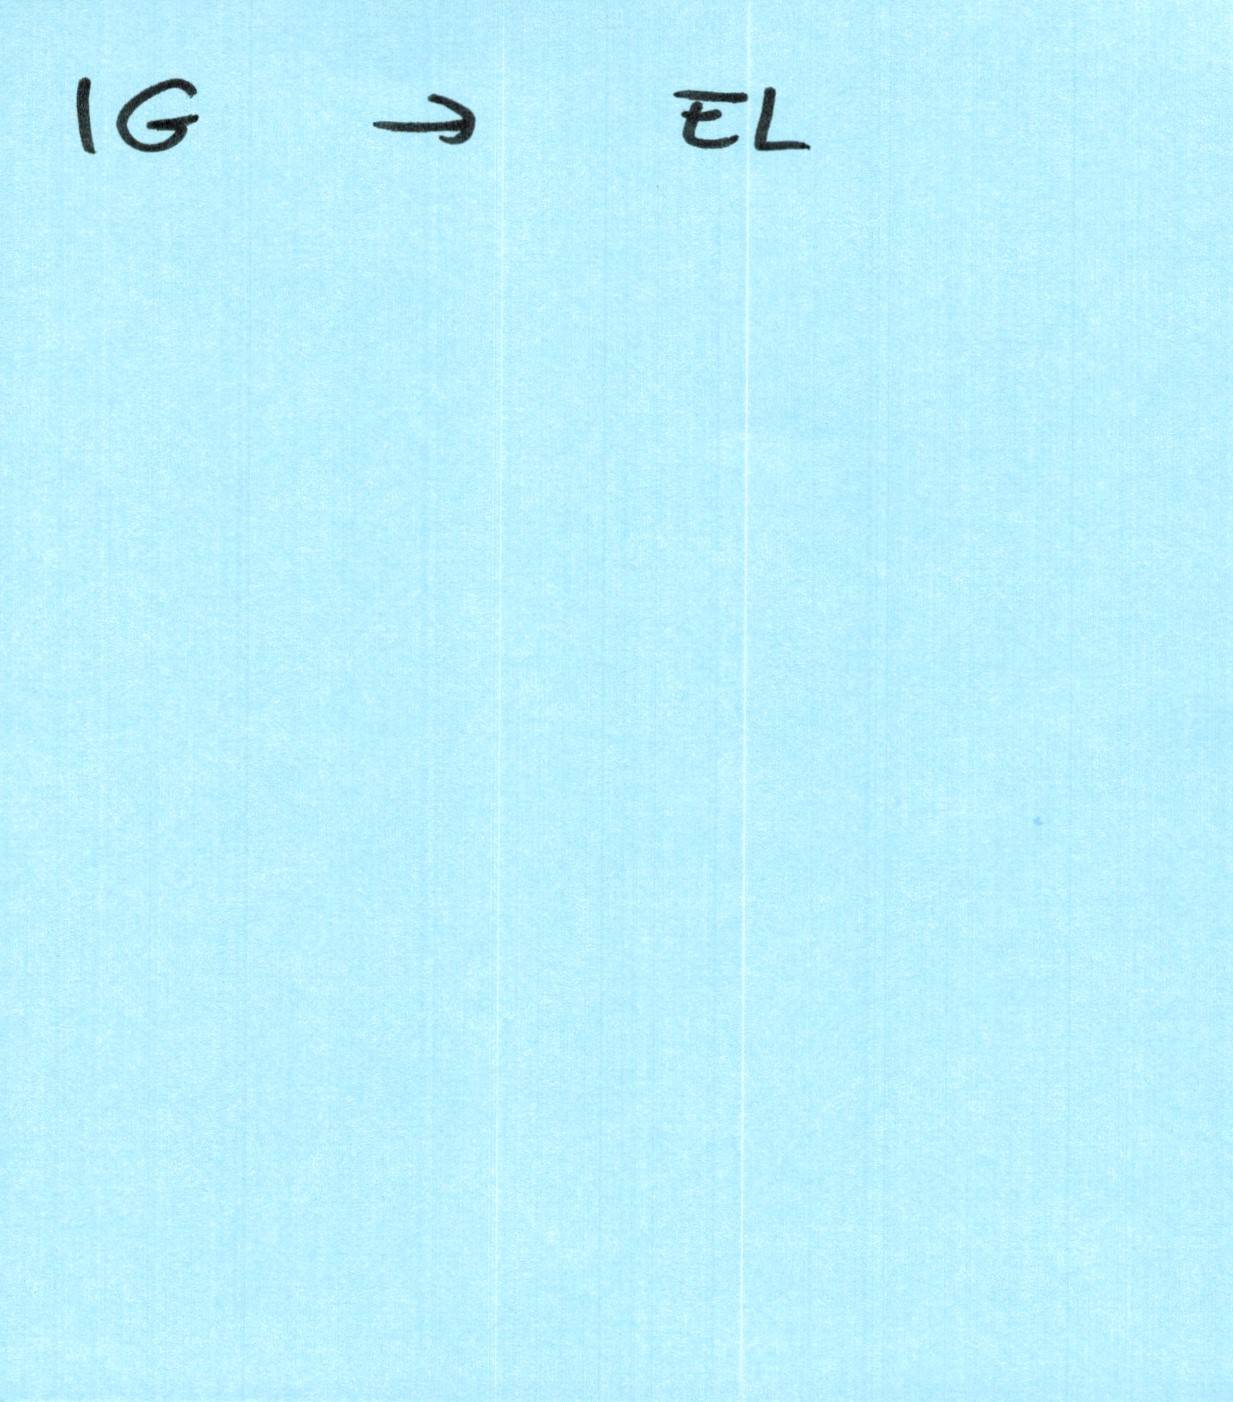 IG → EL